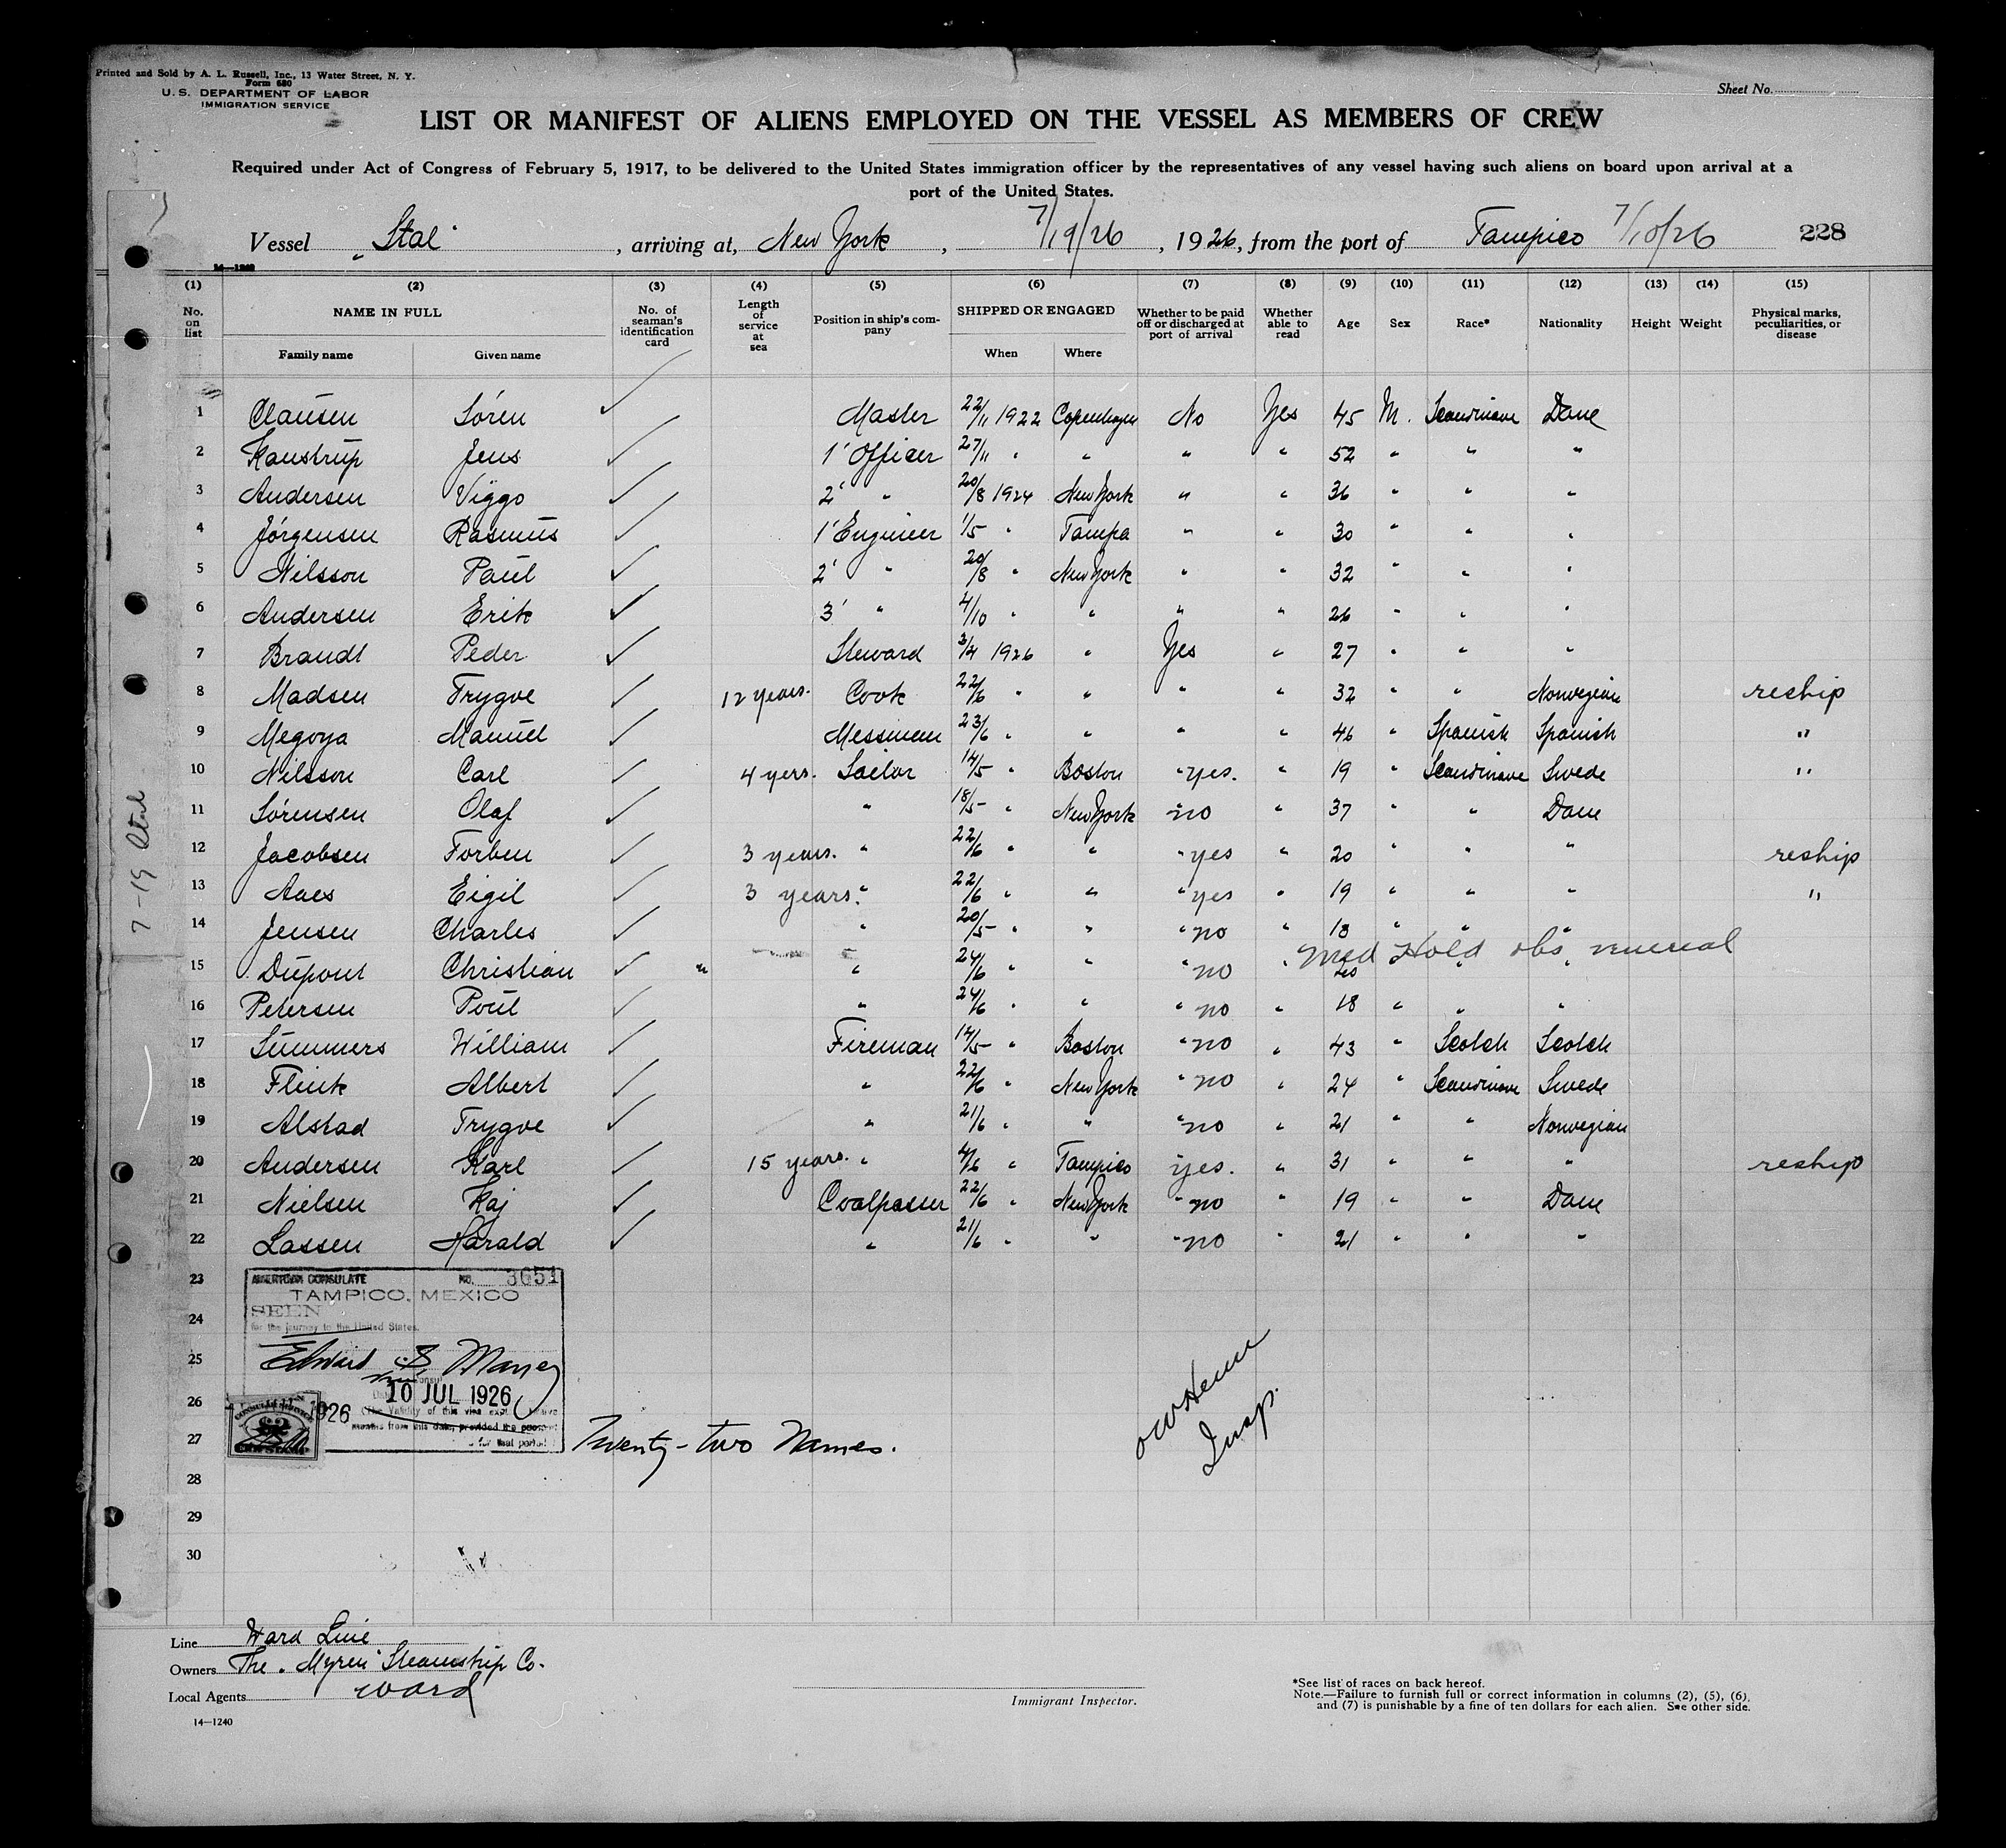 Printed and Sold by A. L. Russell, Inc., 13 Water Street, N. Y.
Form 680
U. S. DEPARTMENT OF LABOR
IMMIGRATION SERVICE
Sheet No.
LIST OR MANIFEST OF ALIENS EMPLOYED ON THE VESSEL AS MEMBERS OF CREW
Required under Act of Congress of February 5, 1917, to be delivered to the United States immigration officer by the representatives of any vessel having such aliens on board upon arrival at a
port of the United States.
Vessel "Stal", arriving at, New York, 7/19/26, 1926, from the port of Tampico 7/10/26 228
14—1240
(1) (2) (3) (4) (5) (6) (7) (8) (9) (10) (11) (12) (13) (14) (15)
No. on list NAME IN FULL Family name Given name No. of seaman's identification card Length of service at sea Position in ship's company SHIPPED OR ENGAGED When Where Whether to be paid off or discharged at port of arrival Whether able to read Age Sex Race* Nationality Height Weight Physical marks, peculiarities, or disease
1 Clausen Sören ✓ Master 22/11 1922 Copenhagen No Yes 45 M. Scandinave Dane
2 Kaustrup Jens ✓ 1' Officer 27/11 " " " " 52 " " "
3 Andersen Viggo ✓ 2' " 20/8 1924 New York " " 36 " " "
4 Jörgensen Rasmus ✓ 1' Engineer 1/5 " Tampa " " 30 " " "
5 Nilsson Paul ✓ 2' " 20/8 " New York " " 32 " " "
6 Andersen Erik ✓ 3' " 4/10 " " " " 26 " " "
7 Brandt Peder ✓ Steward 3/4 1926 " Yes " 27 " " "
8 Madsen Trygve ✓ 12 years. Cook 22/6 " " " " 32 " " Norwegian reship
9 Megoya Manuel ✓ Messman 23/6 " " " " 46 " Spanish Spanish "
10 Nilsson Carl ✓ 4 yers. Sailor 14/5 " Boston " yes. " 19 " Scandinave Swede "
11 Sörensen Olaf ✓ " 18/5 " New York " no " 37 " " Dane
12 Jacobsen Torben ✓ 3 years. " 22/6 " " " yes " 20 " " " reship
13 Aaes Eigil ✓ 3 years. " 22/6 " " " yes " 19 " " " "
14 Jensen Charles ✓ " 20/5 " " " no " 18 " " "
Med Hold obs venereal
15 Dupont Christian ✓ " " 24/6 " " " no " 20 " "
16 Petersen Poul ✓ " 24/6 " " " no " 18 " " "
17 Summers William ✓ Fireman 14/5 " Boston " no " 43 " Scotch Scotch
18 Flink Albert ✓ " 22/6 " New York " no " 24 " Scandinave Swede
19 Alstad Trygve ✓ " 21/6 " " " no " 21 " " Norwegian
20 Andersen Karl ✓ 15 years. " 4/6 " Tampico yes. " 31 " " " reship
21 Nielsen Kaj ✓ Coalpasser 22/6 " New York " no " 19 " " Dane
22 Lassen Harald ✓ " 21/6 " " " no " 21 " " "
23
24
25
26
27
28
29
30
AMERICAN CONSULATE NO. 3651
TAMPICO, MEXICO
SEEN
for the journey to the United States.
Edward S. Maney
10 JUL 1926
1926
$2
Twenty-two Names.
Insp.
7-19 Stal
Line Ward Line
Owners The "Myren" Steamship Co.
Local Agents Ward
14—1240
Immigrant Inspector.
*See list of races on back hereof.
Note.—Failure to furnish full or correct information in columns (2), (5), (6),
and (7) is punishable by a fine of ten dollars for each alien. See other side.